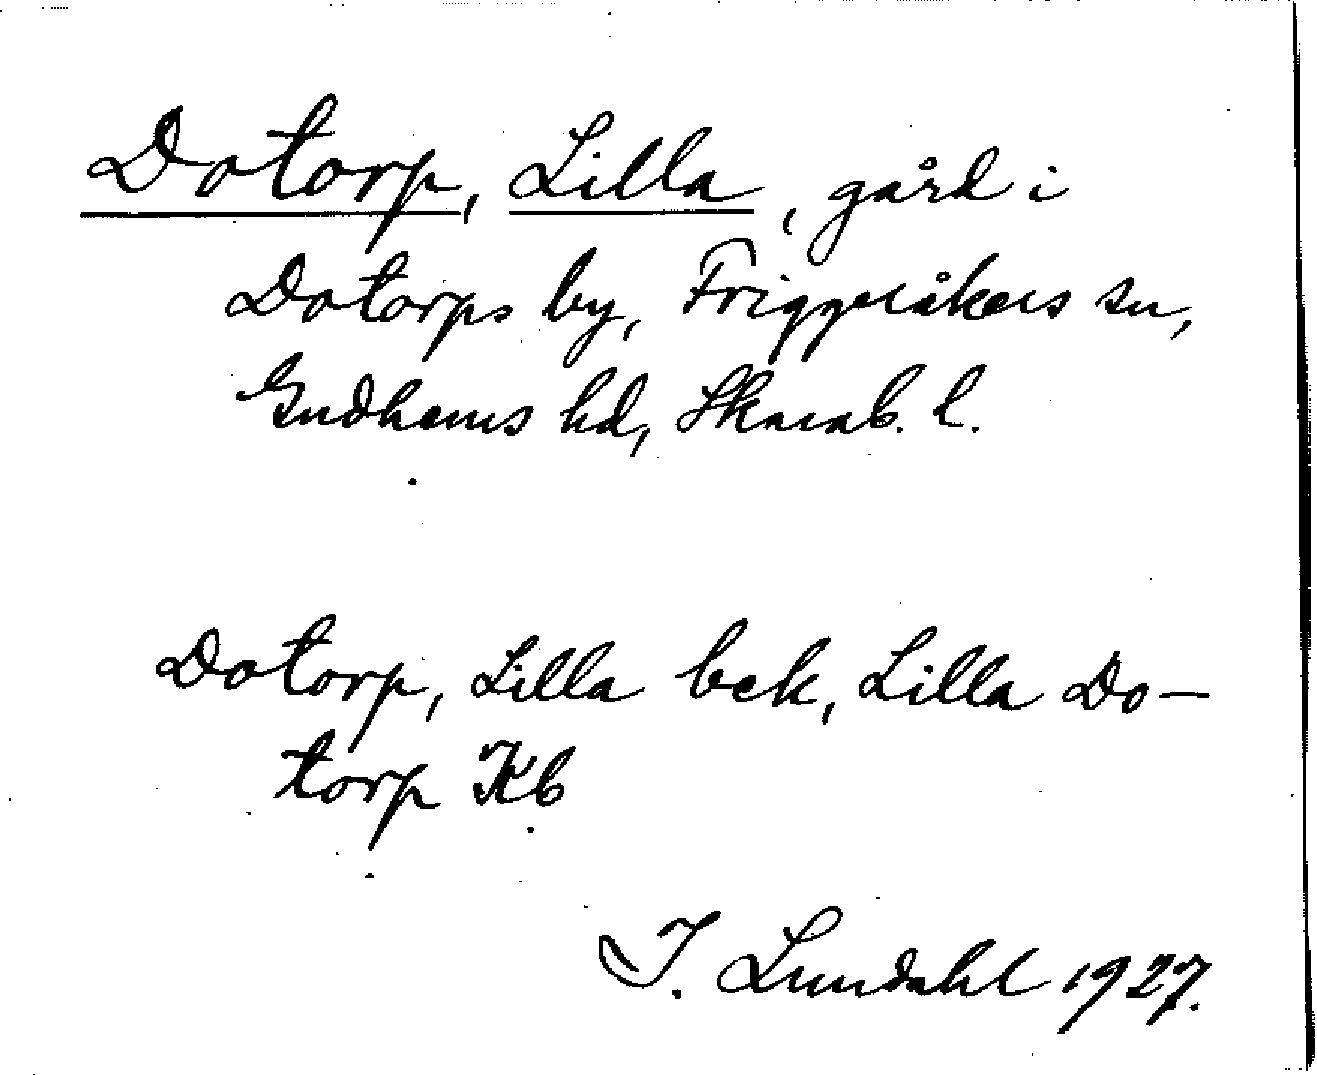 Dotorp, Lilla, gård i
Dotorps by, Friggeråkers sn,
Gudhems hd, Skarab. l.
Dotorp, Lilla bek, Lilla Do-
torp Kb
I. Lundahl 1927.